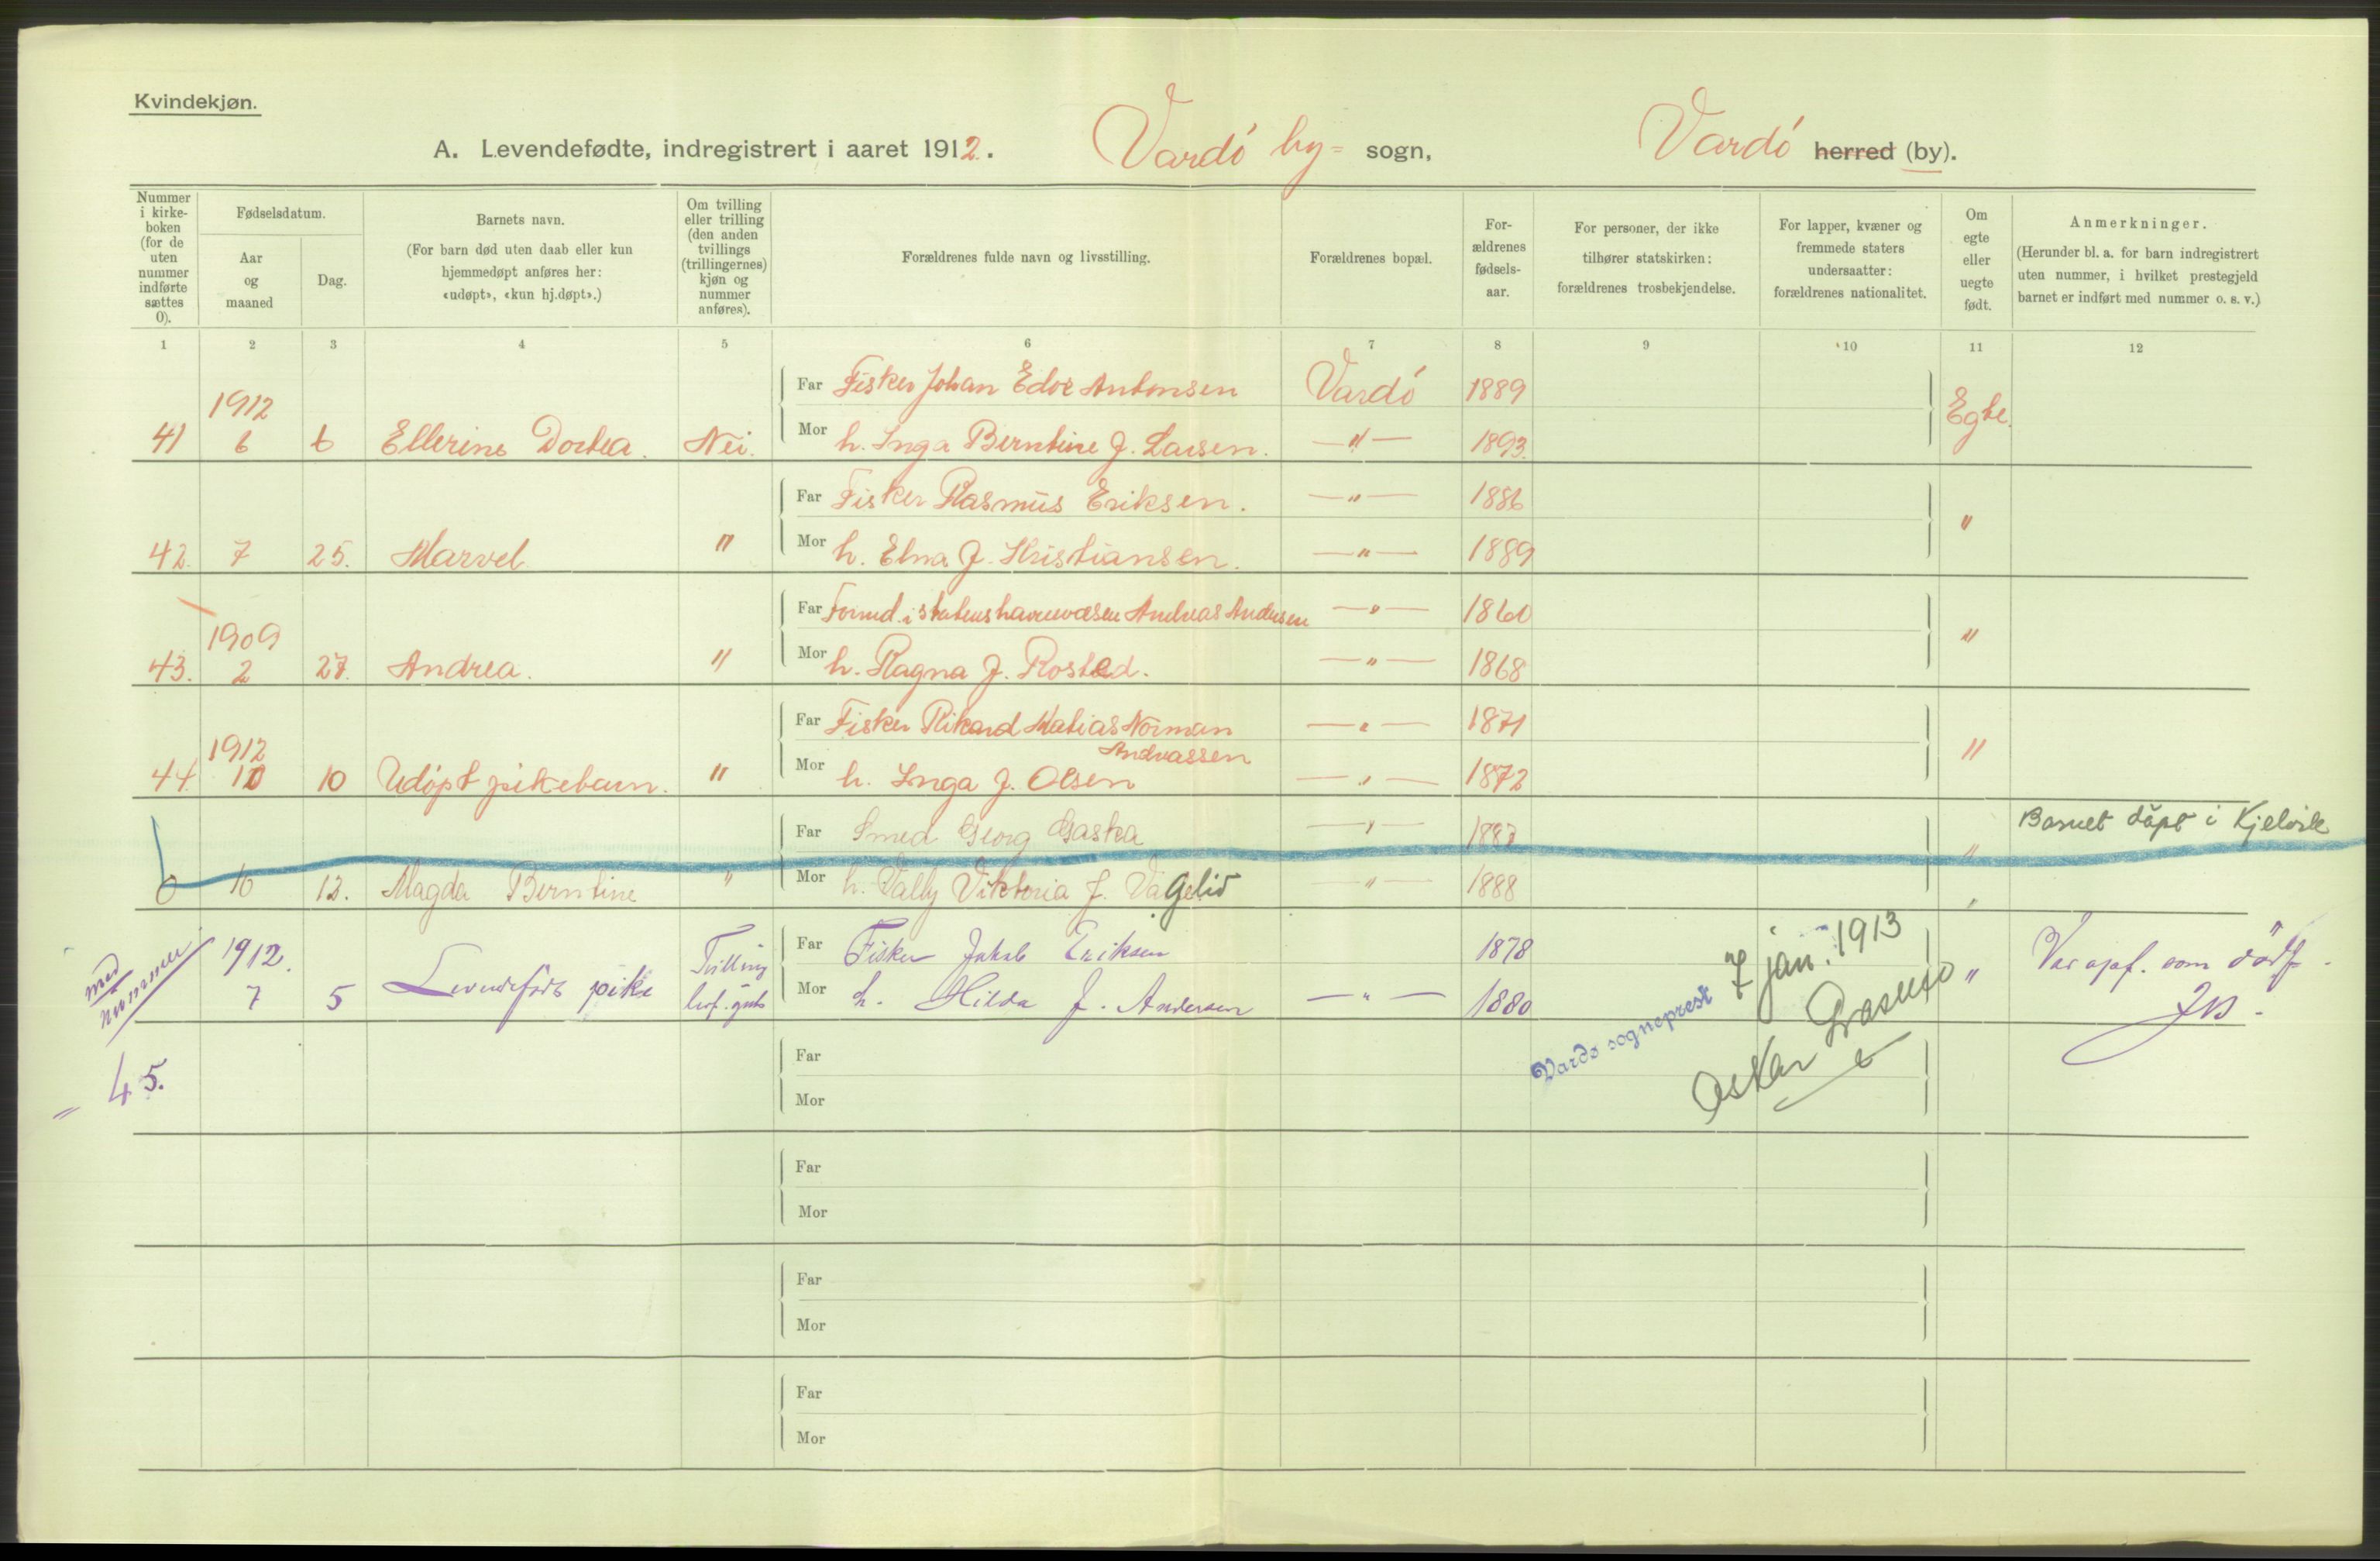 Kvindekjøn.
A. Levendefødte, indregistrert i aaret 1912. Vardö by= sogn, Vardö herred (by).
Nummer i kirke-boken (for de uten nummer indførte sættes 0).
Fødselsdatum.
Aar og maaned
Dag.
Barnets navn.
(For barn død uten daab eller kun hjemmedøpt anføres her: «udøpt», «kun hj.døpt».)
Om tvilling eller trilling (den anden tvillings (trillingernes) kjøn og nummer anføres).
Forældrenes fulde navn og livsstilling.
Forældrenes bopæl.
For-ældrenes fødsels-aar.
For personer, der ikke tilhører statskirken: forældrenes trosbekjendelse.
For lapper, kvæner og fremmede staters undersaatter: forældrenes nationalitet.
Om egte eller uegte født.
Anmerkninger.
(Herunder bl. a. for barn indregistrert uten nummer, i hvilket prestegjeld barnet er indført med nummer o. s. v.)
1 2 3 4 5 6 7 8 9 10 11 12
Far Fisker Johan Edor Antonsen Vardö 1889
1912 Egte.
41 6 6 Ellerine Dortea. Nei. Mor h. Inga Berntine J. Larsen. —"— 1893.
Far Fisker Rasmus Eriksen. —"— 1886
42. 7 25. Marvel " Mor h. Elna J. Kristiansen. —"— 1889 "
Far Formd. i statens havnevæsen Andreas Andersen —"— 1860
1909
43. 2 27. Andrea. " Mor h. Ragna J. Rosted. —"— 1868 "
Far Fisker Rikard Matias Norman —"— 1871
Andreassen
1912
44. 10 10 Udöpt pikebarn. " Mor h. Inga J. Olsen —"— 1872 "
Far Smed Georg Gaska —"— 1887 " Barnet döpt i Kjelvik
0 10 12. Magda Berntine " Mor h. Vally Viktoria J. Vagelid —"— 1888 "
med nummer
1912. Tvilling Far Fisker Jakob Eriksen 1878
7 5 Levendefödt pike Mor h. Hilda J. Andersen —"— 1880 " Var opf. som död
45.
Vardø sogneprest 7 jan. 1913
Oskar
Far
Mor
Far
Mor
Far
Mor
Far
Mor